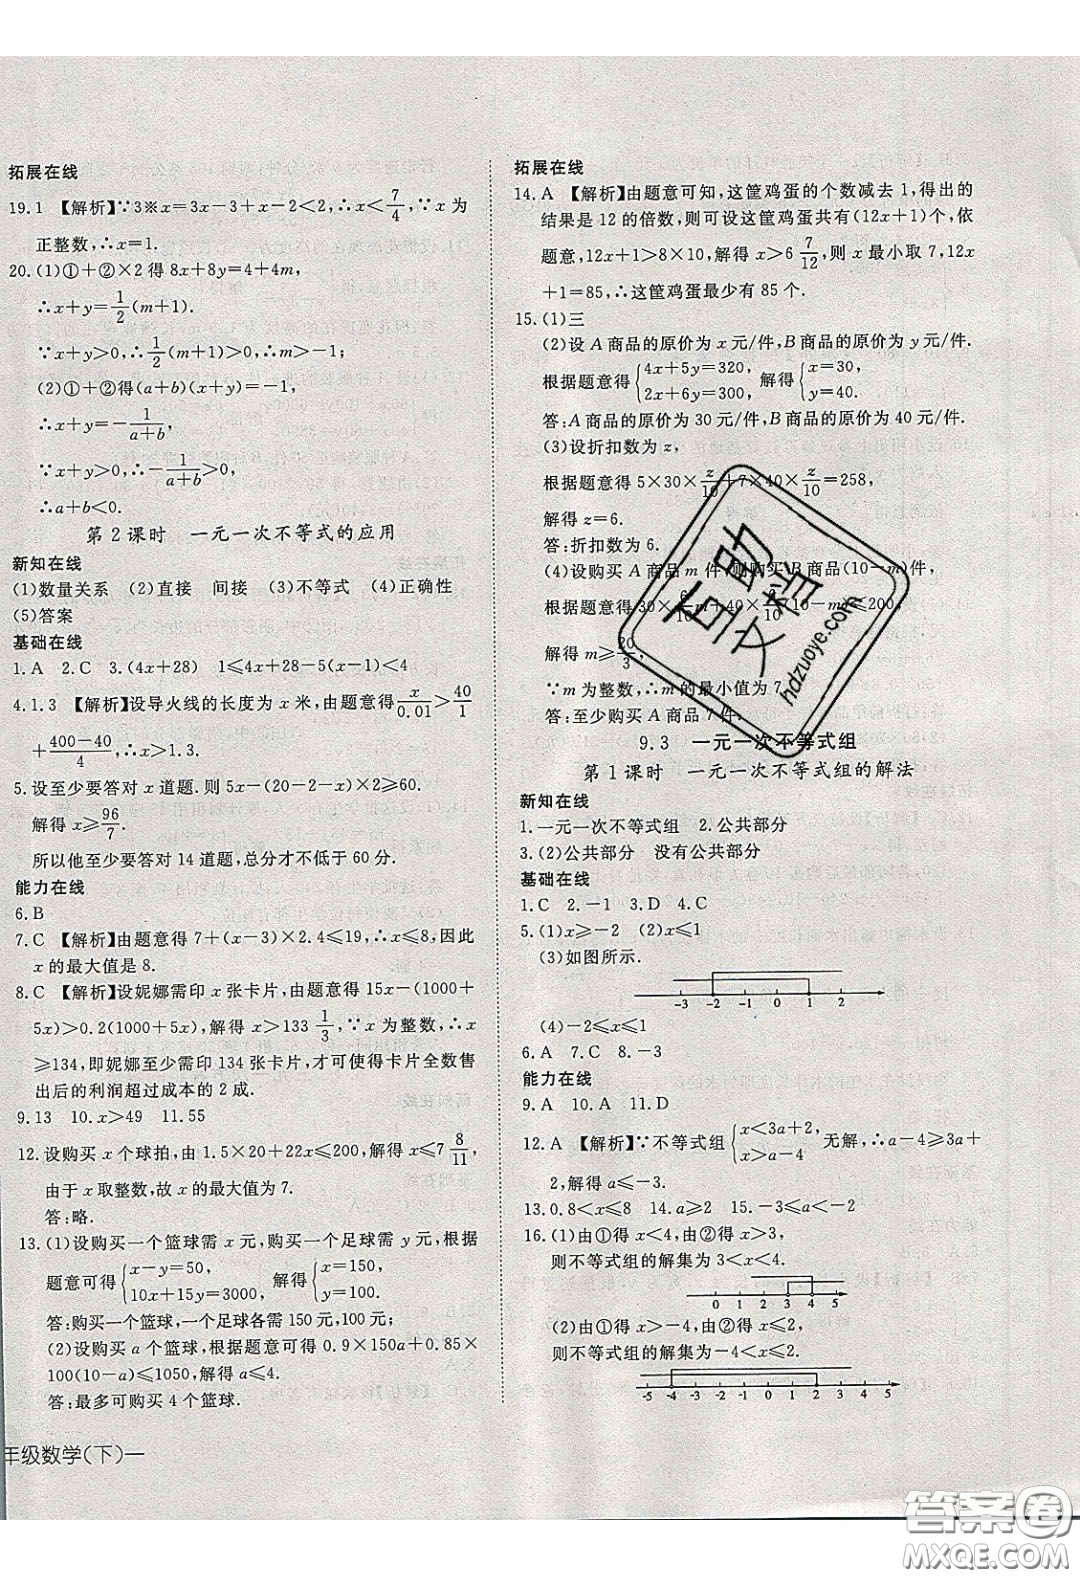 拓展在线
19.1 【解析】∵3※x=3x-3+x-2<2,∴x<7/4,∵x为
正整数,∴x=1.
20.(1)①+②×2得8x+8y=4+4m,
∴x+y=1/2(m+1).
∵x+y>0,∴1/2(m+1)>0,∴m>-1;
(2)①+②得(a+b)(x+y)=-1,
∴x+y=-1/(a+b),
∵x+y>0,∴-1/(a+b)>0,
∴a+b<0.
第2课时 一元一次不等式的应用
新知在线
(1)数量关系 (2)直接 间接 (3)不等式 (4)正确性
(5)答案
基础在线
1.A 2.C 3.(4x+28) 1≤4x+28-5(x-1)<4
4.1.3 【解析】设导火线的长度为x米,由题意得x/0.01>40/1
+(400-40)/4,∴x>1.3.
5.设至少要答对x道题. 5x-(20-2-x)×2≥60.
解得x≥96/7.
所以他至少要答对14道题,总分才不低于60分.
能力在线
6.B
7.C 【解析】由题意得7+(x-3)×2.4≤19,∴x≤8,因此
x的最大值是8.
8.C 【解析】设妮娜需印x张卡片,由题意得15x-(1000+
5x)>0.2(1000+5x),解得x>133 1/3,∵x为整数,∴x
≥134,即妮娜至少需印134张卡片,才可使得卡片全数售
出后的利润超过成本的2成.
9.13 10.x>49 11.55
12.设购买x个球拍,由1.5×20+22x≤200,解得x≤7 8/11,
由于x取整数,故x的最大值为7.
答:略.
13.(1)设购买一个篮球需x元,购买一个足球需y元,根据
题意可得{x-y=50, 10x+15y=3000, 解得{x=150, y=100.
答:购买一个篮球,一个足球各需150元,100元;
(2)设购买a个篮球,根据题意可得0.9×150a+0.85×
100(10-a)≤1050,解得a≤4.
答:最多可购买4个篮球.
年级数学(下)一
拓展在线
14.A 【解析】由题意可知,这筐鸡蛋的个数减去1,得出的
结果是12的倍数,则可设这筐鸡蛋共有(12x+1)个,依
题意,12x+1>8×10,解得x>6 7/12,则x最小取7,12x
+1=85,∴这筐鸡蛋最少有85个.
15.(1)三
(2)设A商品的原价为x元/件,B商品的原价为y元/件.
根据题意得{4x+5y=320, 2x+6y=300, 解得{x=30, y=40.
答:A商品的原价为30元/件,B商品的原价为40元/件.
(3)设折扣数为z,
根据题意得5×30×z/10+7×40×z/10=258,
解得z=6.
答:折扣数为6.
(4)设购买A商品m件,则购买B商品(10-m)件,
根据题意得30×6/10m+40×6/10(10-m)≤200,
解得m≥20/3,
∵m为整数,∴m的最小值为7.
答:至少购买A商品7件.
9.3 一元一次不等式组
第1课时 一元一次不等式组的解法
新知在线
1.一元一次不等式组 2.公共部分
3.(2)公共部分 没有公共部分
基础在线
1.C 2.-1 3.D 4.C
5.(1)x≥-2 (2)x≤1
(3)如图所示.
-3 -2 -1 0 1 2
(4)-2≤x≤1
6.A 7.C 8.-3
能力在线
9.A 10.A 11.D
12.A 【解析】∵不等式组{x<3a+2, x>a-4 无解,∴a-4≥3a+
2,解得a≤-3.
13.0.8<x≤8 14.a≥2 15.-3<x≤2
16.(1)由①得x<4,由②得x>3,
则不等式组的解集为3<x<4.
0 1 2 3 4 5
(2)由①得x>-4,由②得x≤2,
则不等式组的解集为-4<x≤2.
-5 -4 -3 -2 -1 0 1 2 3 4 5
百助文档
hdzuoye.com
答案圈
MXQE.COM